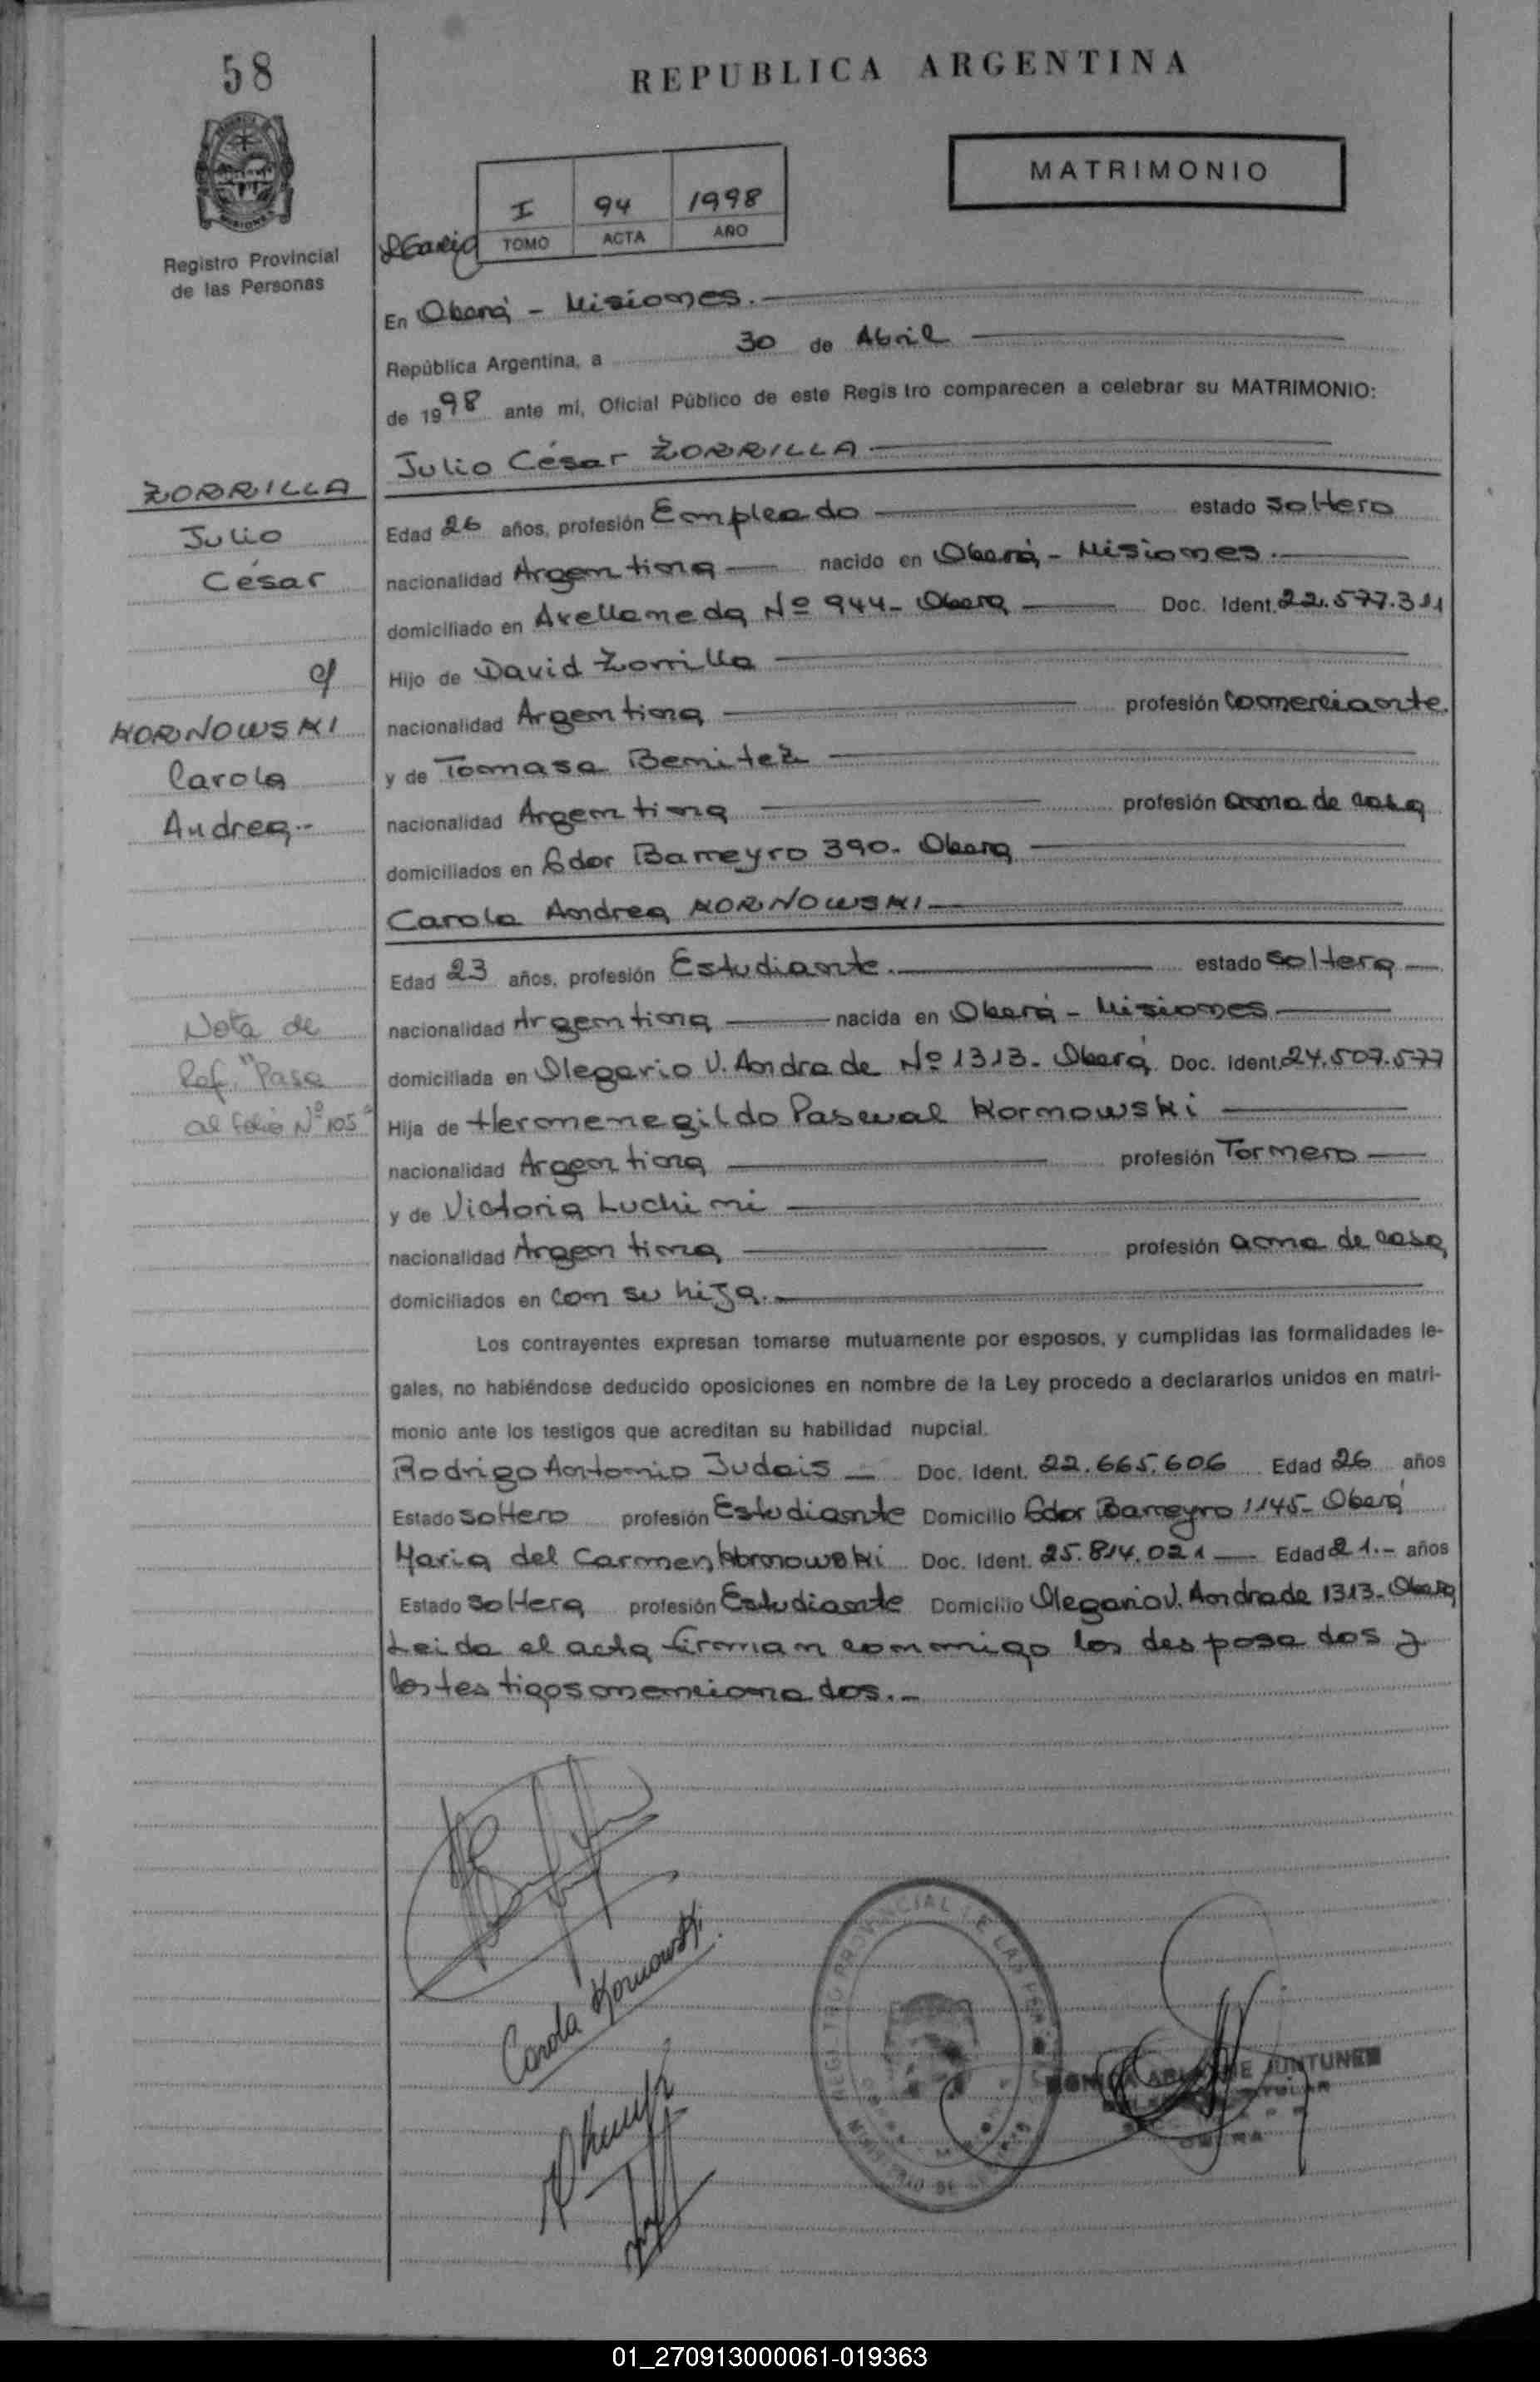 58
REPUBLICA ARGENTINA
MATRIMONIO
I 94 1998
TOMO ACTA AÑO
Registro Provincial
de las Personas
En Oberá - Misiones.
República Argentina, a 30 de Abril
de 1998 ante mí, Oficial Público de este Registro comparecen a celebrar su MATRIMONIO:
Julio César ZORRILLA
ZORRILLA
Julio
César
c/
KORNOWSKI
Carola
Andrea.-
Edad 26 años, profesión Empleado estado soltero
nacionalidad Argentina nacido en Oberá - Misiones.
domiciliado en Avellaneda Nº 944- Oberá Doc. Ident. 22.577.311
Hijo de David Zorrilla
nacionalidad Argentina profesión comerciante
y de Tomasa Benitez
nacionalidad Argentina profesión ama de casa
domiciliados en Gdor Barreyro 390. Oberá
Carola Andrea KORNOWSKI
Edad 23 años, profesión Estudiante. estado soltera
nacionalidad Argentina nacida en Oberá - Misiones
domiciliada en Olegario V. Andrade Nº 1313- Oberá. Doc. Ident. 24.507.577
Nota de
Ref. "Pasa
al folio Nº 105"
Hija de Hermenegildo Pascual Kornowski
nacionalidad Argentina profesión Tornero
y de Victoria Luchini
nacionalidad Argentina profesión ama de casa
domiciliados en con su hija.
Los contrayentes expresan tomarse mutuamente por esposos, y cumplidas las formalidades le-
gales, no habiéndose deducido oposiciones en nombre de la Ley procedo a declararlos unidos en matri-
monio ante los testigos que acreditan su habilidad nupcial.
Rodrigo Antonio Judais Doc. Ident. 22.665.606 Edad 26 años
Estado soltero profesión Estudiante Domicilio Gdor Barreyro 1145- Oberá
Maria del Carmen Kornowski Doc. Ident. 25.814.021 Edad 21.- años
Estado soltera profesión Estudiante Domicilio Olegario V. Andrade 1313- Oberá
Leida el acta firman conmigo los desposados y
los testigos mencionados.-
Carola Kornowski
01_270913000061-019363